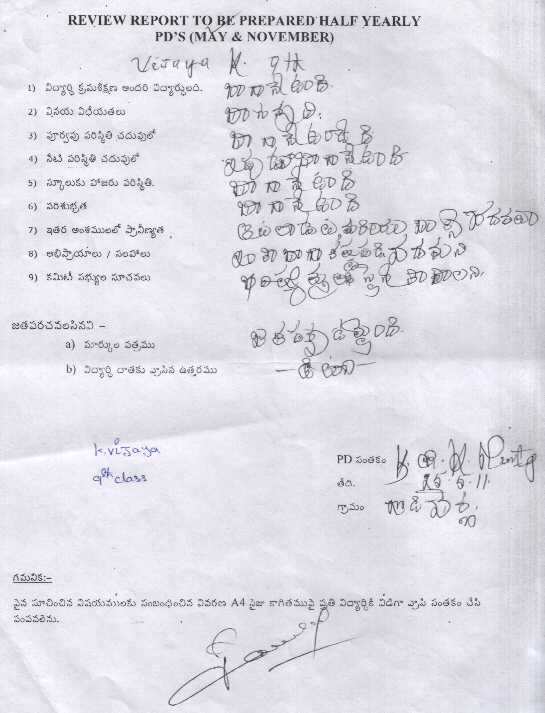 REVIEW REPORT TO BE PREPARED HALF YEARLY
PD'S (MAY & NOVEMBER)
Vijaya K. 9th
1) విద్యార్థి క్రమశిక్షణ అందరి విద్యార్థులది. బాగానే ఉంది.
2) వినయ విధేయతలు బాగున్నది.
3) పూర్వపు పరిస్థితి చదువులో బాగానే ఉండేది
4) నేటి పరిస్థితి చదువులో ఇప్పుడు బాగానే ఉంది
5) స్కూలుకు హాజరు పరిస్థితి. బాగానే ఉంది
6) పరిశుభ్రత బాగానే ఉంది
7) ఇతర అంశములలో ప్రావీణ్యత
8) అభిప్రాయాలు / సలహాలు
9) కమిటీ సభ్యుల సూచనలు
జతపరచవలసినవి –
a) మార్కుల పత్రము
b) విద్యార్థి దాతకు వ్రాసిన ఉత్తరము
K.Vijaya
9th class
PD సంతకం
తేది. 25.5.11.
గ్రామం
గమనిక:–
పైన సూచించిన విషయములకు సంబంధించిన వివరణ A4 సైజు కాగితముపై ప్రతి విద్యార్థికి విడిగా వ్రాసి సంతకం చేసి
పంపవలెను.